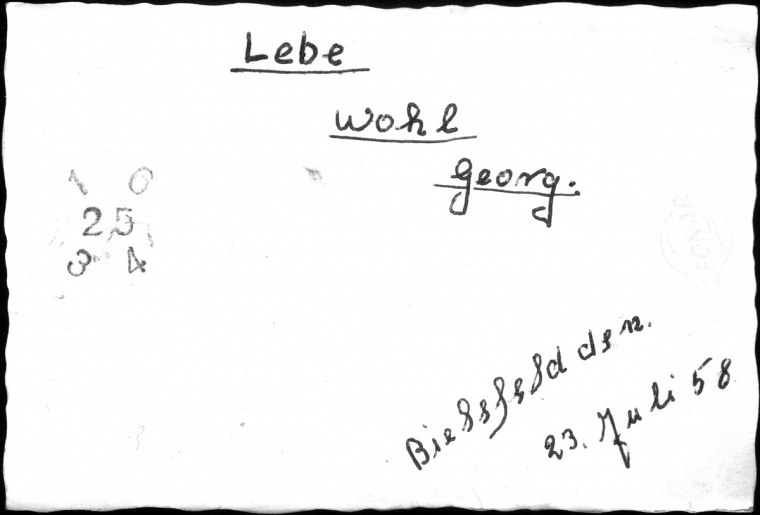 Lebe
wohl
Georg.
1 6
25
3 4
Bielefeld den.
23. Juli 58